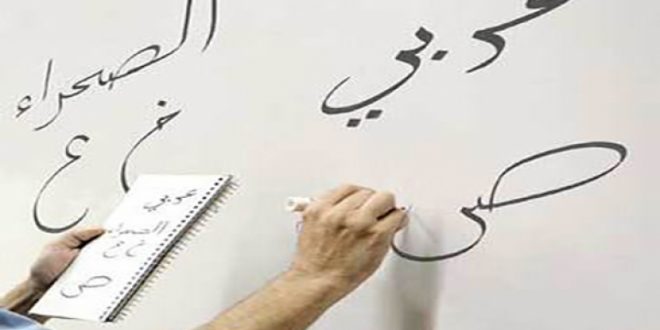 عربي
الصحراء
خ ع
ص
عربي
الصحراء
ص